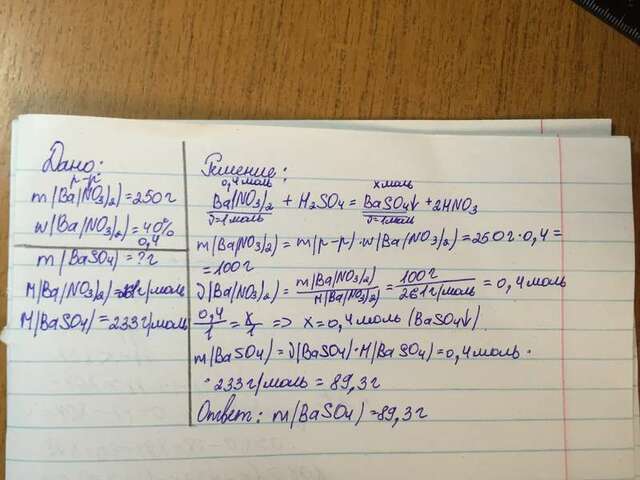 Дано:
р-ра
m(Ba(NO3)2) = 250г
w(Ba(NO3)2) = 40%
0,4
m(BaSO4) = ? г
M(Ba(NO3)2) = 261 г/моль
M(BaSO4) = 233 г/моль
Решение:
0,4 моль x моль
Ba(NO3)2 + H2SO4 = BaSO4↓ + 2HNO3
ν=1 моль ν=1 моль
m(Ba(NO3)2) = m(р-ра) · w(Ba(NO3)2) = 250г · 0,4 =
= 100г
ν(Ba(NO3)2) = m(Ba(NO3)2) / M(Ba(NO3)2) = 100г / 261 г/моль = 0,4 моль
0,4/1 = x/1 => x = 0,4 моль (BaSO4↓)
m(BaSO4) = ν(BaSO4) · M(BaSO4) = 0,4 моль ·
· 233 г/моль = 89,3 г
Ответ: m(BaSO4) = 89,3 г